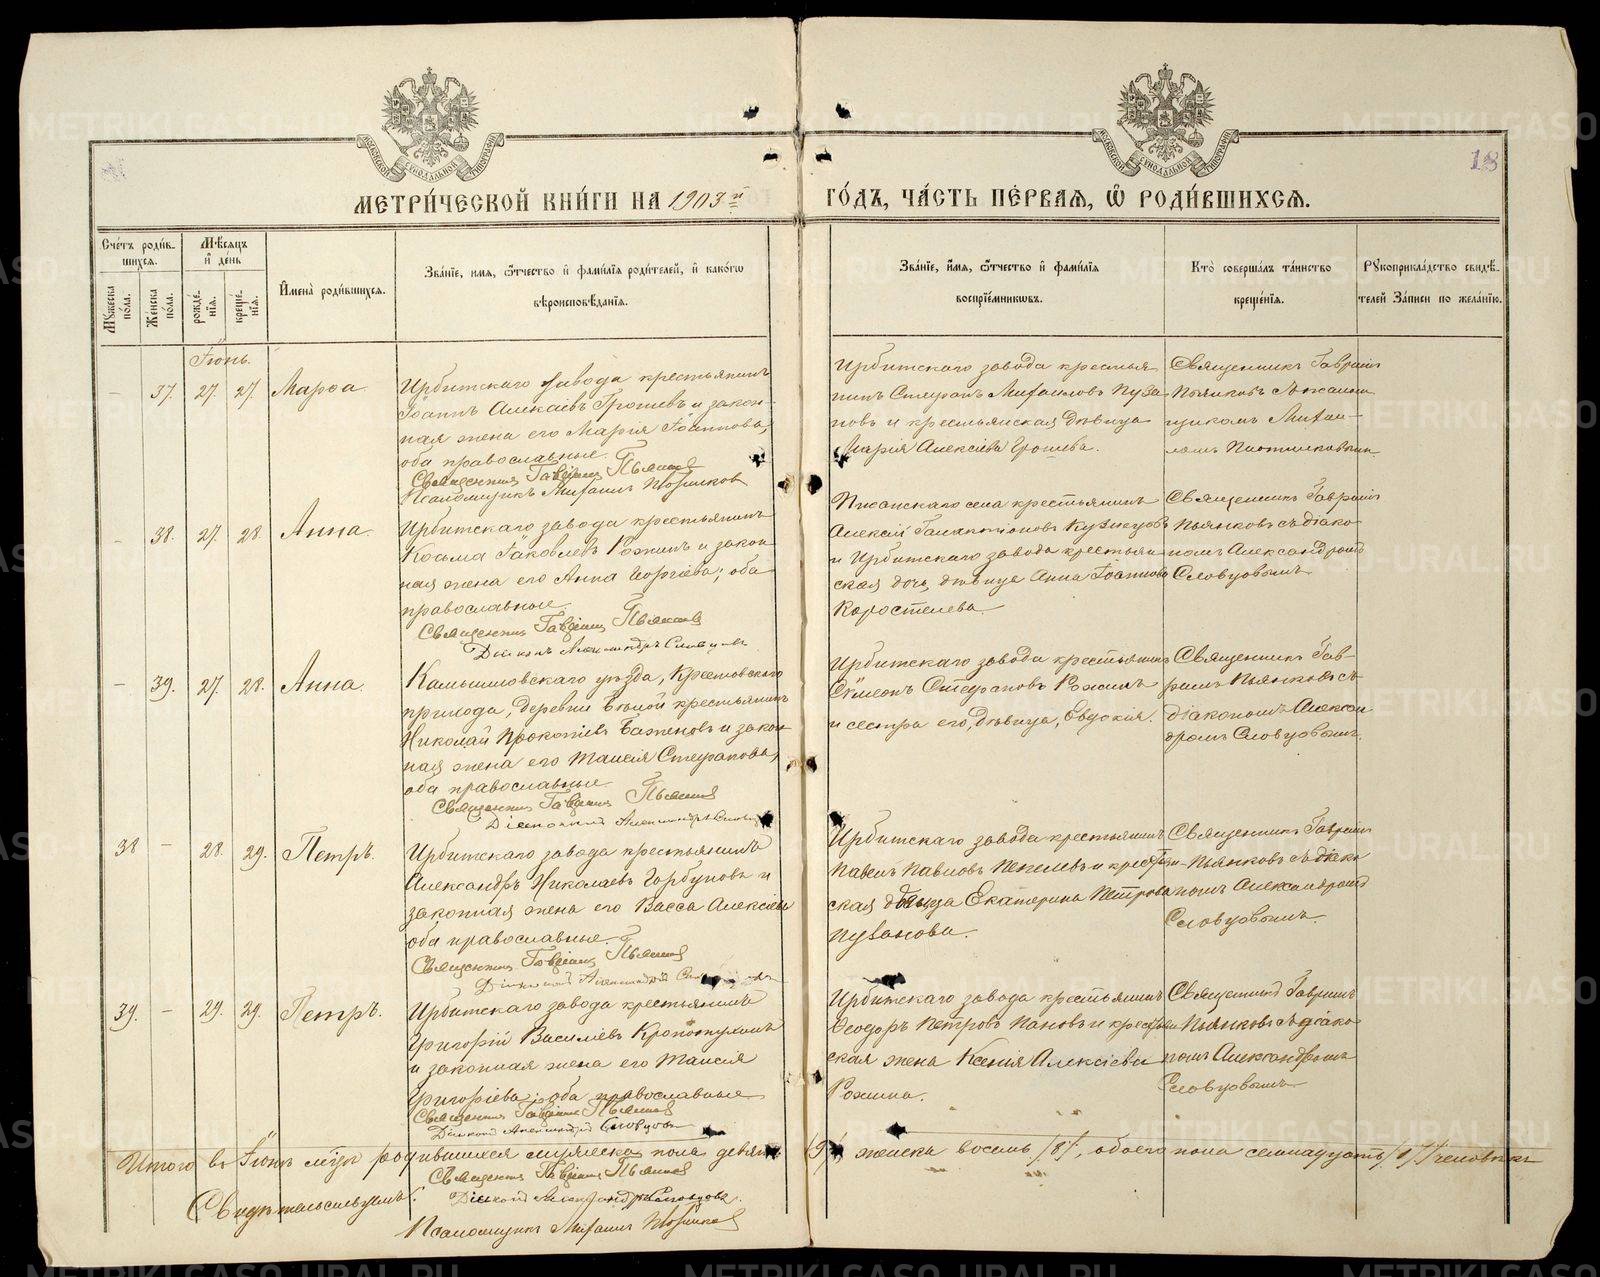 18
МЕТРИ́ЧЕСКОЙ КНИ́ГИ НА 1903й ГО́ДЪ, ЧА́СТЬ ПЕ́РВАѦ, Ѽ РОДИ́ВШИХСѦ.
Сче́тъ роди́вшихсѧ.
Мꙋжеска по́ла.
Же́нска по́ла.
Мѣ́сѧцъ и де́нь
рожде́нїѧ.
креще́нїѧ.
Имена̀ роди́вшихсѧ.
Зва́нїе, имѧ, ѻтчество и фами́лїѧ роди́телей, и како́гѡ вѣроисповѣ́данїѧ.
Зва́нїе, и́мѧ, ѻтчество и фами́лїѧ воспрїе́мникѡвъ.
Кто̀ соверша́лъ та́инство креще́нїѧ.
Рꙋкоприкла́дство свидѣ́телей За́писи по жела́нїю.
Іюнь.
37. 27. 27. Марѳа
Ирбитскаго завода крестьянинъ
Іоаннъ Алексѣевъ Грошевъ и закон-
ная жена его Марія Іоаннова,
оба православные.
Священникъ Гавріилъ Пьянков
Псаломщикъ Михаилъ
Ирбитскаго завода крестья
нинъ Стефанъ Михаиловъ Пуза
новъ и крестьянская дѣвица
Марія Алексіева Грошева.
Священникъ Гавріилъ
Пьянковъ съ псалом
щикомъ Михаи-
ломъ
38. 27. 28. Анна.
Ирбитскаго завода крестьянинъ
Косьма Іаковлевъ Рожинъ и закон
ная жена его Анна Георгіева; оба
православные.
Священникъ Гавріилъ Пьянков
Діаконъ Александръ Словцовъ
Писанскаго села крестьянинъ
Алексій Галактіоновъ Кузнецовъ
и Ирбитскаго завода крестьян
ская дочь, дѣвица Анна Іоаннова
Коростелева
Священникъ Гавріилъ
Пьянковъ съ діако
номъ Александромъ
Словцовымъ
39. 27. 28. Анна.
Камышловскаго уѣзда, Крестовскаго
прихода, деревни крестьянинъ
Николай Прокопіевъ Баженовъ и закон
ная жена его Таисія Стефанова,
оба православные
Священникъ Гавріилъ Пьянков
Діаконъ Александръ Словцовъ
Ирбитскаго завода крестьянинъ
Сѵмеонъ Стефановъ Рожинъ
и сестра его, дѣвица, Евдокія.
Священникъ Гав-
ріилъ Пьянковъ съ
діакономъ Алексан
дромъ Словцовымъ.
38 28. 29. Петръ.
Ирбитскаго завода крестьянинъ
Александръ Николаевъ Горбуновъ и
законная жена его Васса Алексіева
оба православные.
Священникъ Гавріилъ Пьянков
Діаконъ Александръ
Ирбитскаго завода крестьянинъ
Павелъ Павловъ Пепелевъ и крестьян-
ская дѣвица Екатерина Петрова
Пузанова.
Священникъ Гавріилъ
Пьянковъ съ діако
номъ Александромъ
Словцовымъ
39. 29. 29. Петръ.
Ирбитскаго завода крестьянинъ
Григорій Василіевъ Кропотухинъ
и законная жена его Таисія
Григоріева, оба православные
Священникъ Гавріилъ Пьянков
Діаконъ Александръ Словцовъ
Ирбитскаго завода крестьянинъ
Ѳеодоръ Петровъ Пановъ и крестьян
ская жена Ксенія Алексіева
Рожина.
Священникъ Гавріилъ
Пьянковъ съ діако
номъ Александромъ
Словцовымъ
Итого въ Іюнѣ м-цѣ родившихся мужеска пола девять /9/, женска восемь /8/, обоего пола семнадцать /17/ человѣкъ
Свидѣтельствуемъ:
Священникъ Гавріилъ Пьянков
Діаконъ Александръ Словцовъ.
Псаломщикъ Михаилъ
METRIKI.GASO-URAL.RU